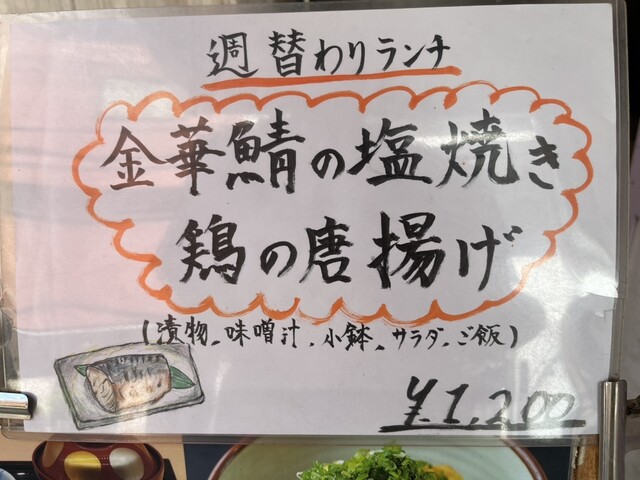 週替わりランチ
金華鯖の塩焼き
鶏の唐揚げ
(漬物、味噌汁、小鉢、サラダ、ご飯)
¥1,200